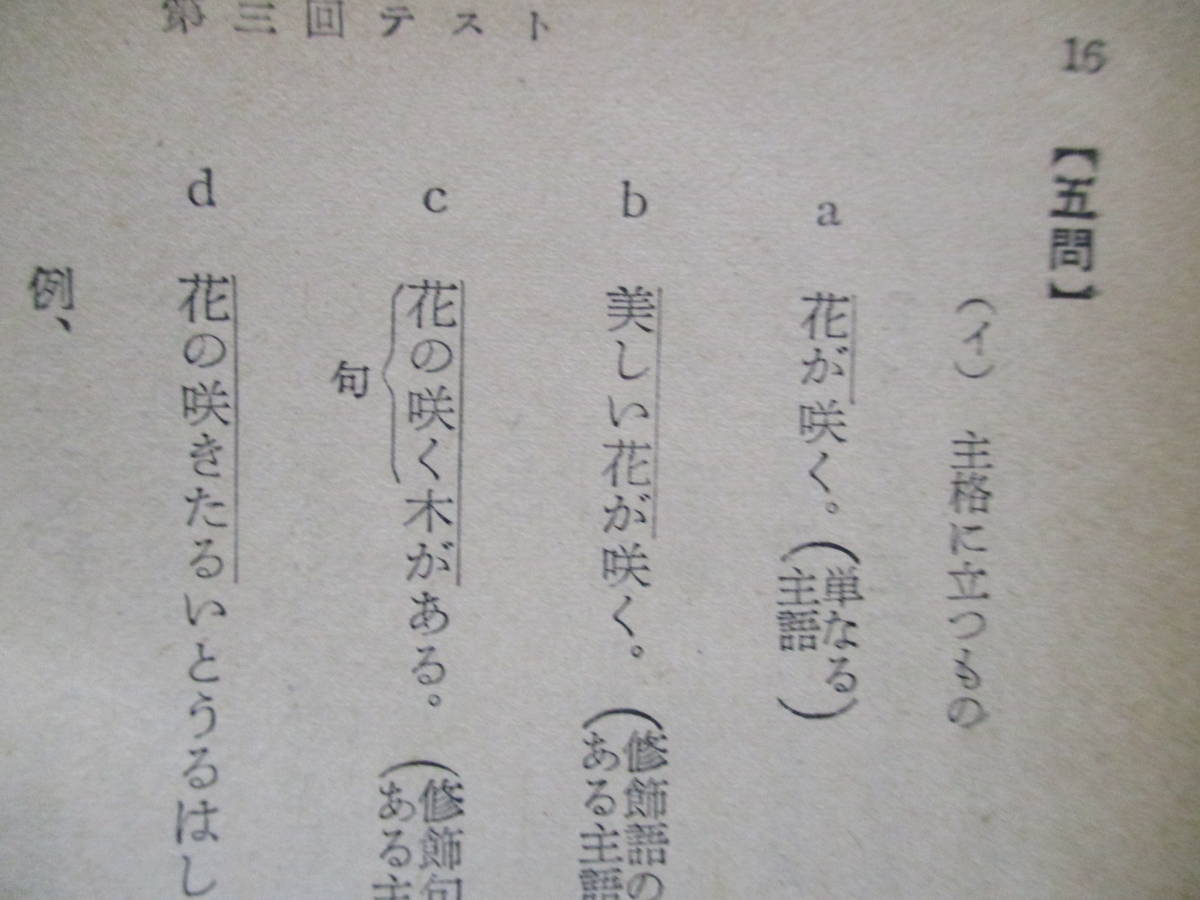 第三回テスト
16
【五問】
(イ) 主格に立つもの
a 花が咲く。(単なる主語)
b 美しい花が咲く。(修飾語のある主語
c 花の咲く木がある。(修飾句
ある主
句
d 花の咲きたるいとうるはし
例、